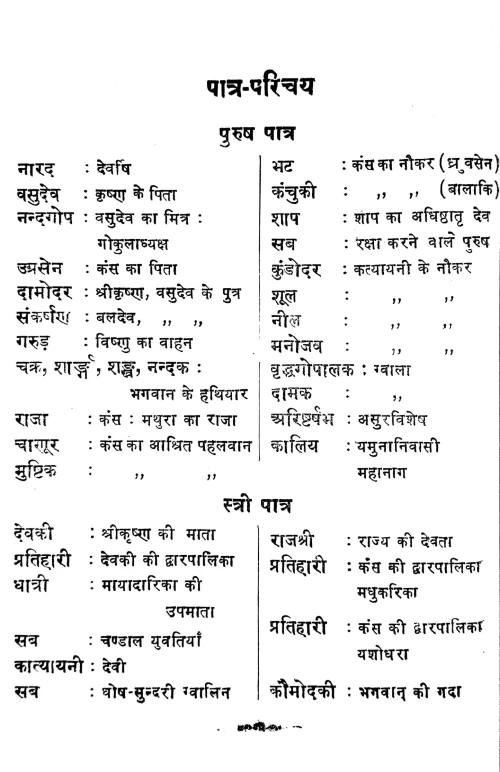 पात्र-परिचय
पुरुष पात्र
नारद : देवर्षि
वसुदेव : कृष्ण के पिता
नन्दगोप : वसुदेव का मित्र :
गोकुलाध्यक्ष
उग्रसेन : कंस का पिता
दामोदर : श्रीकृष्ण, वसुदेव के पुत्र
संकर्षण : बलदेव, ,, ,,
गरुड़ : विष्णु का वाहन
चक्र, शार्ङ्ग, शङ्ख, नन्दक :
भगवान के हथियार
राजा : कंस : मथुरा का राजा
चाणूर : कंस का आश्रित पहलवान
मुष्टिक : ,, ,,
भट : कंस का नौकर (ध्रुवसेन)
कंचुकी : ,, ,, (बालाकि)
शाप : शाप का अधिष्ठातृ देव
सब : रक्षा करने वाले पुरुष
कुंडोदर : कत्यायनी के नौकर
शूल : ,, ,,
नील : ,, ,,
मनोजव : ,, ,,
वृद्धगोपालक : ग्वाला
दामक : ,,
अरिष्टर्षभ : असुरविशेष
कालिय : यमुनानिवासी
महानाग
स्त्री पात्र
देवकी : श्रीकृष्ण की माता
प्रतिहारी : देवकी की द्वारपालिका
धात्री : मायादारिका की
उपमाता
सब : चण्डाल युवतियाँ
कात्यायनी : देवी
सब : घोष-सुन्दरी ग्वालिन
राजश्री : राज्य की देवता
प्रतिहारी : कंस की द्वारपालिका
मधुकरिका
प्रतिहारी : कंस की द्वारपालिका
यशोधरा
कौमोदकी : भगवान् की गदा